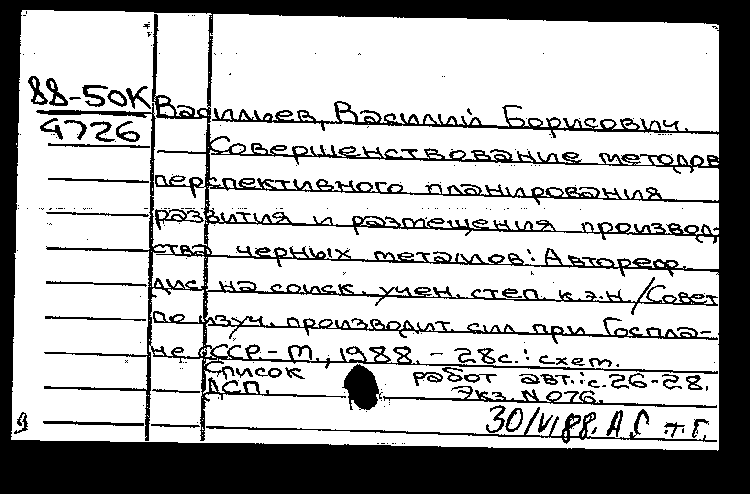 88-50К
4726
Васильев, Василий Борисович.
Совершенствование методов
перспективного планирования
развития и размещения производ-
ства черных металлов: Автореф.
дис. на соиск. учен. степ. к.э.н. /Совет
по изуч. производит. сил при Госпла-
не СССР.- М., 1988. - 28с.: схем.
Список работ авт.: с.26-28.
ДСП. Экз. N 076.
9 30/VI 88.